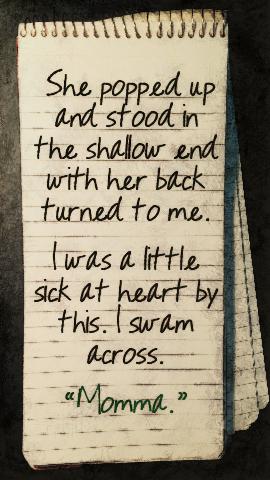 She popped up
and stood in
the shallow end
with her back
turned to me.
I was a little
sick at heart by
this. I swam
across.
“Momma.”